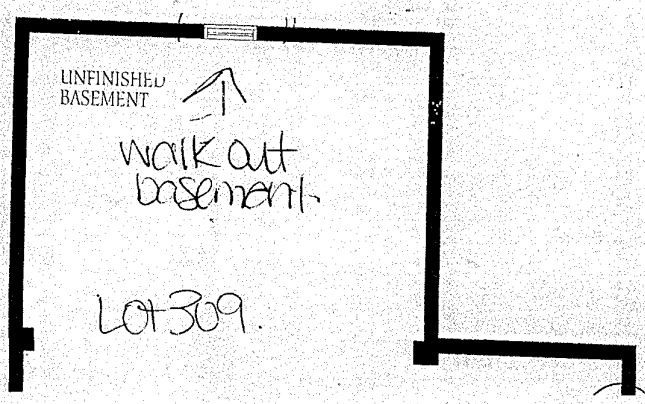 UNFINISHED
BASEMENT
walk out
basement
Lot 309.